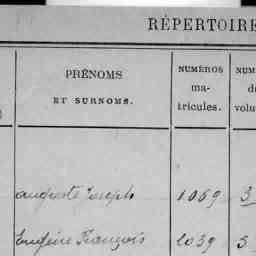 RÉPERTOIRE
PRÉNOMS
ET SURNOMS.
NUMÉROS
ma-
tricules.
NUM
d
volu
auguste Joseph 1069 3
Eugène François 1039 3